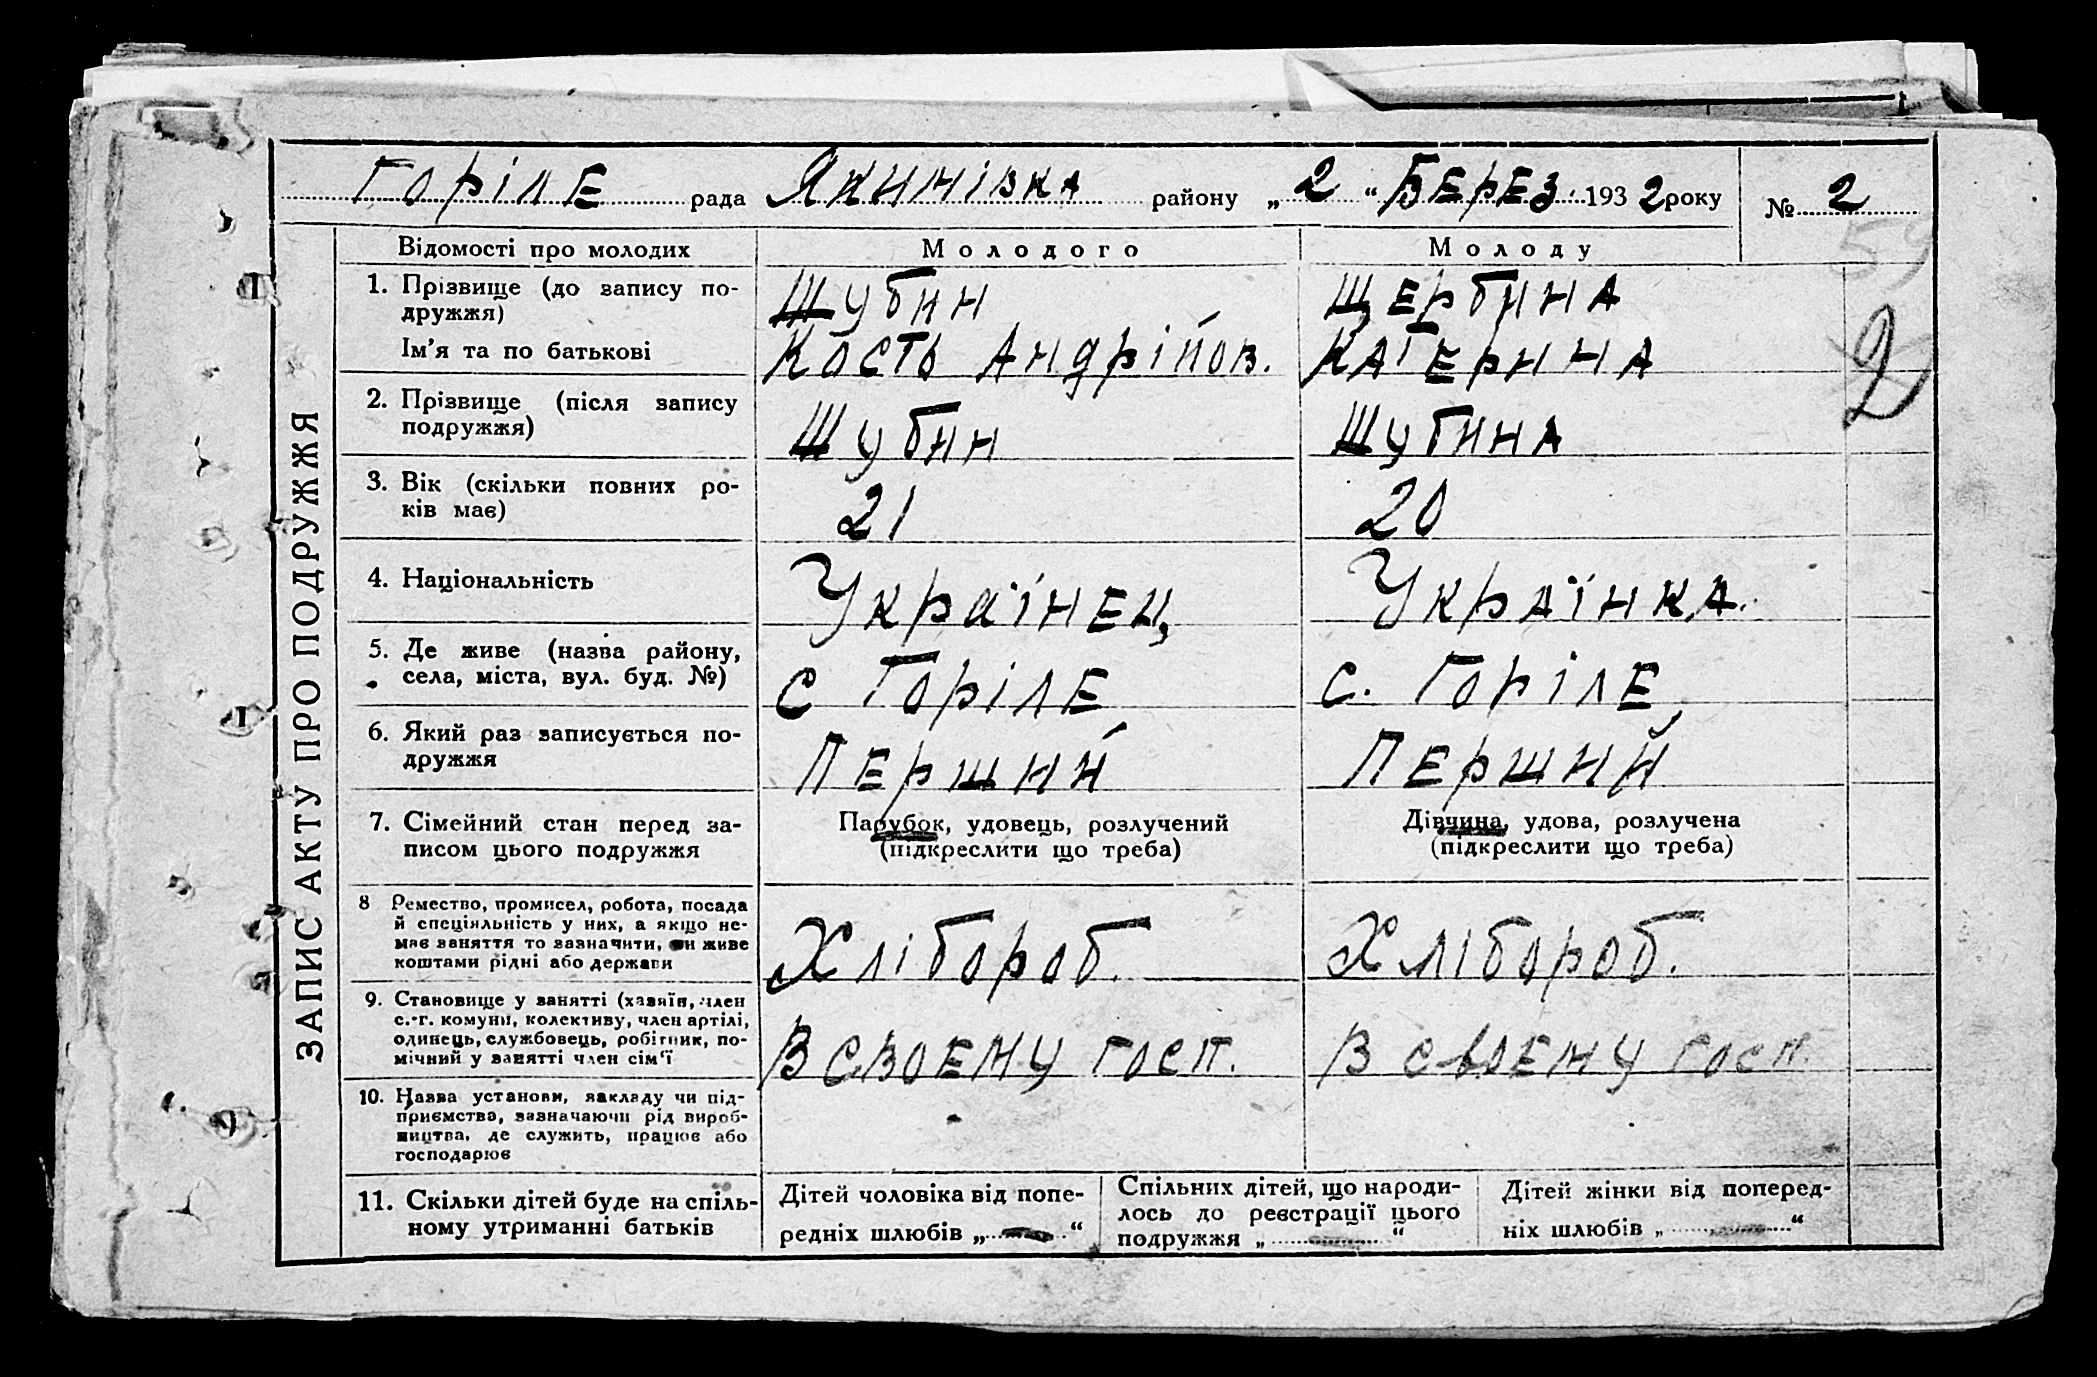 Горіле рада Якимівка району „ 2 “ Берез. 1932 року № 2
59
2
ЗАПИС АКТУ ПРО ПОДРУЖЖЯ
Відомості про молодих Молодого Молоду
1. Прізвище (до запису по-
дружжя) Шубин Щербина
Ім'я та по батькові Кость Андрійов. Катерина
2. Прізвище (після запису
подружжя) Шубин Шубина
3. Вік (скільки повних ро-
ків має) 21 20
4. Національність Українец, Українка.
5. Де живе (назва району,
села, міста, вул. буд. №) с Горіле с. Горіле
6. Який раз записується по-
дружжя Перший Перший
7. Сімейний стан перед за-
писом цього подружжя
Парубок, удовець, розлучений
(підкреслити що треба)
Дівчина, удова, розлучена
(підкреслити що треба)
8 Ремество, промисел, робота, посада
й спеціяльність у них, а якщо не-
має заняття то зазначити, чи живе
коштами рідні або держави
Хлібороб. Хлібороб.
9. Становище у занятті (хазяїн, член
с.-г. комуни, колективу, член артілі,
одинець, службовець, робітник, по-
мічний у занятті член сім'ї
В своему госп. В своему госп.
10. Назва установи, закладу чи під-
приємства, зазначаючи рід вироб-
ництва, де служить, працює або
господарює
11. Скільки дітей буде на спіль-
ному утриманні батьків
Дітей чоловіка від попе-
редніх шлюбів „ — “
Спільних дітей, що народи-
лось до реєстрації цього
подружжя „ — “
Дітей жінки від поперед-
ніх шлюбів „ — “